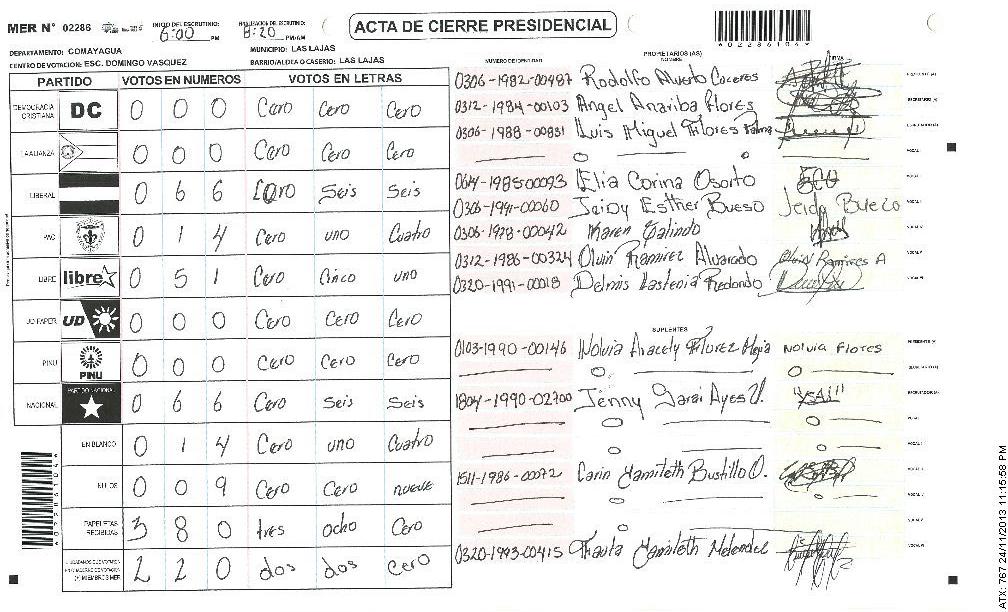 MER N° 02286
INICIO DEL ESCRUTINIO: 6:00 PM
FINALIZACION DEL ESCRUTINIO: 8:20 PM/AM
ACTA DE CIERRE PRESIDENCIAL
DEPARTAMENTO: COMAYAGUA
MUNICIPIO: LAS LAJAS
CENTRO DE VOTACION: ESC. DOMINGO VASQUEZ
BARRIO/ALDEA O CASERIO: LAS LAJAS
PARTIDO VOTOS EN NUMEROS VOTOS EN LETRAS
DEMOCRACIA CRISTIANA DC 0 0 0 Cero Cero Cero
LA ALIANZA 0 0 0 Cero Cero Cero
LIBERAL 0 6 6 Cero Seis Seis
PAC 0 1 4 Cero uno Cuatro
LIBRE libre 0 5 1 Cero Cinco uno
UD FAPER UD 0 0 0 Cero Cero Cero
PINU PINU 0 0 0 Cero Cero Cero
NACIONAL PARTIDO NACIONAL 0 6 6 Cero Seis Seis
EN BLANCO 0 1 4 Cero uno Cuatro
NULOS 0 0 9 Cero Cero nueve
PAPELETAS RECIBIDAS 3 8 0 tres ocho Cero
2 2 0 dos dos Cero
NUMERO DE IDENTIDAD PROPIETARIOS (AS) NOMBRE FIRMA
0306-1982-00487 Rodolfo Alverto Caceres
0312-1984-00103 Angel Anariba Flores
0306-1988-00831 Luis Miguel Flores Palma
0614-1985-00093 Elia Corina Osorto
0306-1991-00060 Jeidy Esther Bueso Jeidy Bueso
0306-1978-00042 Karen Galindo
0312-1986-00324 Olvin Ramirez Alvarado Olvin Ramires A
0320-1991-00018 Delmis Lastenia Redondo
SUPLENTES
0103-1990-00146 Nolvia Aracely Flores Mejia Nolvia Flores
1804-1990-02700 Jenny Sarai Ayes U. "YSAI"
1511-1986-00072 Carin Yamileth Bustillo O.
0320-1993-00415 Yamileth Melendez
ATX: 767 24/11/2013 11:15:58 PM